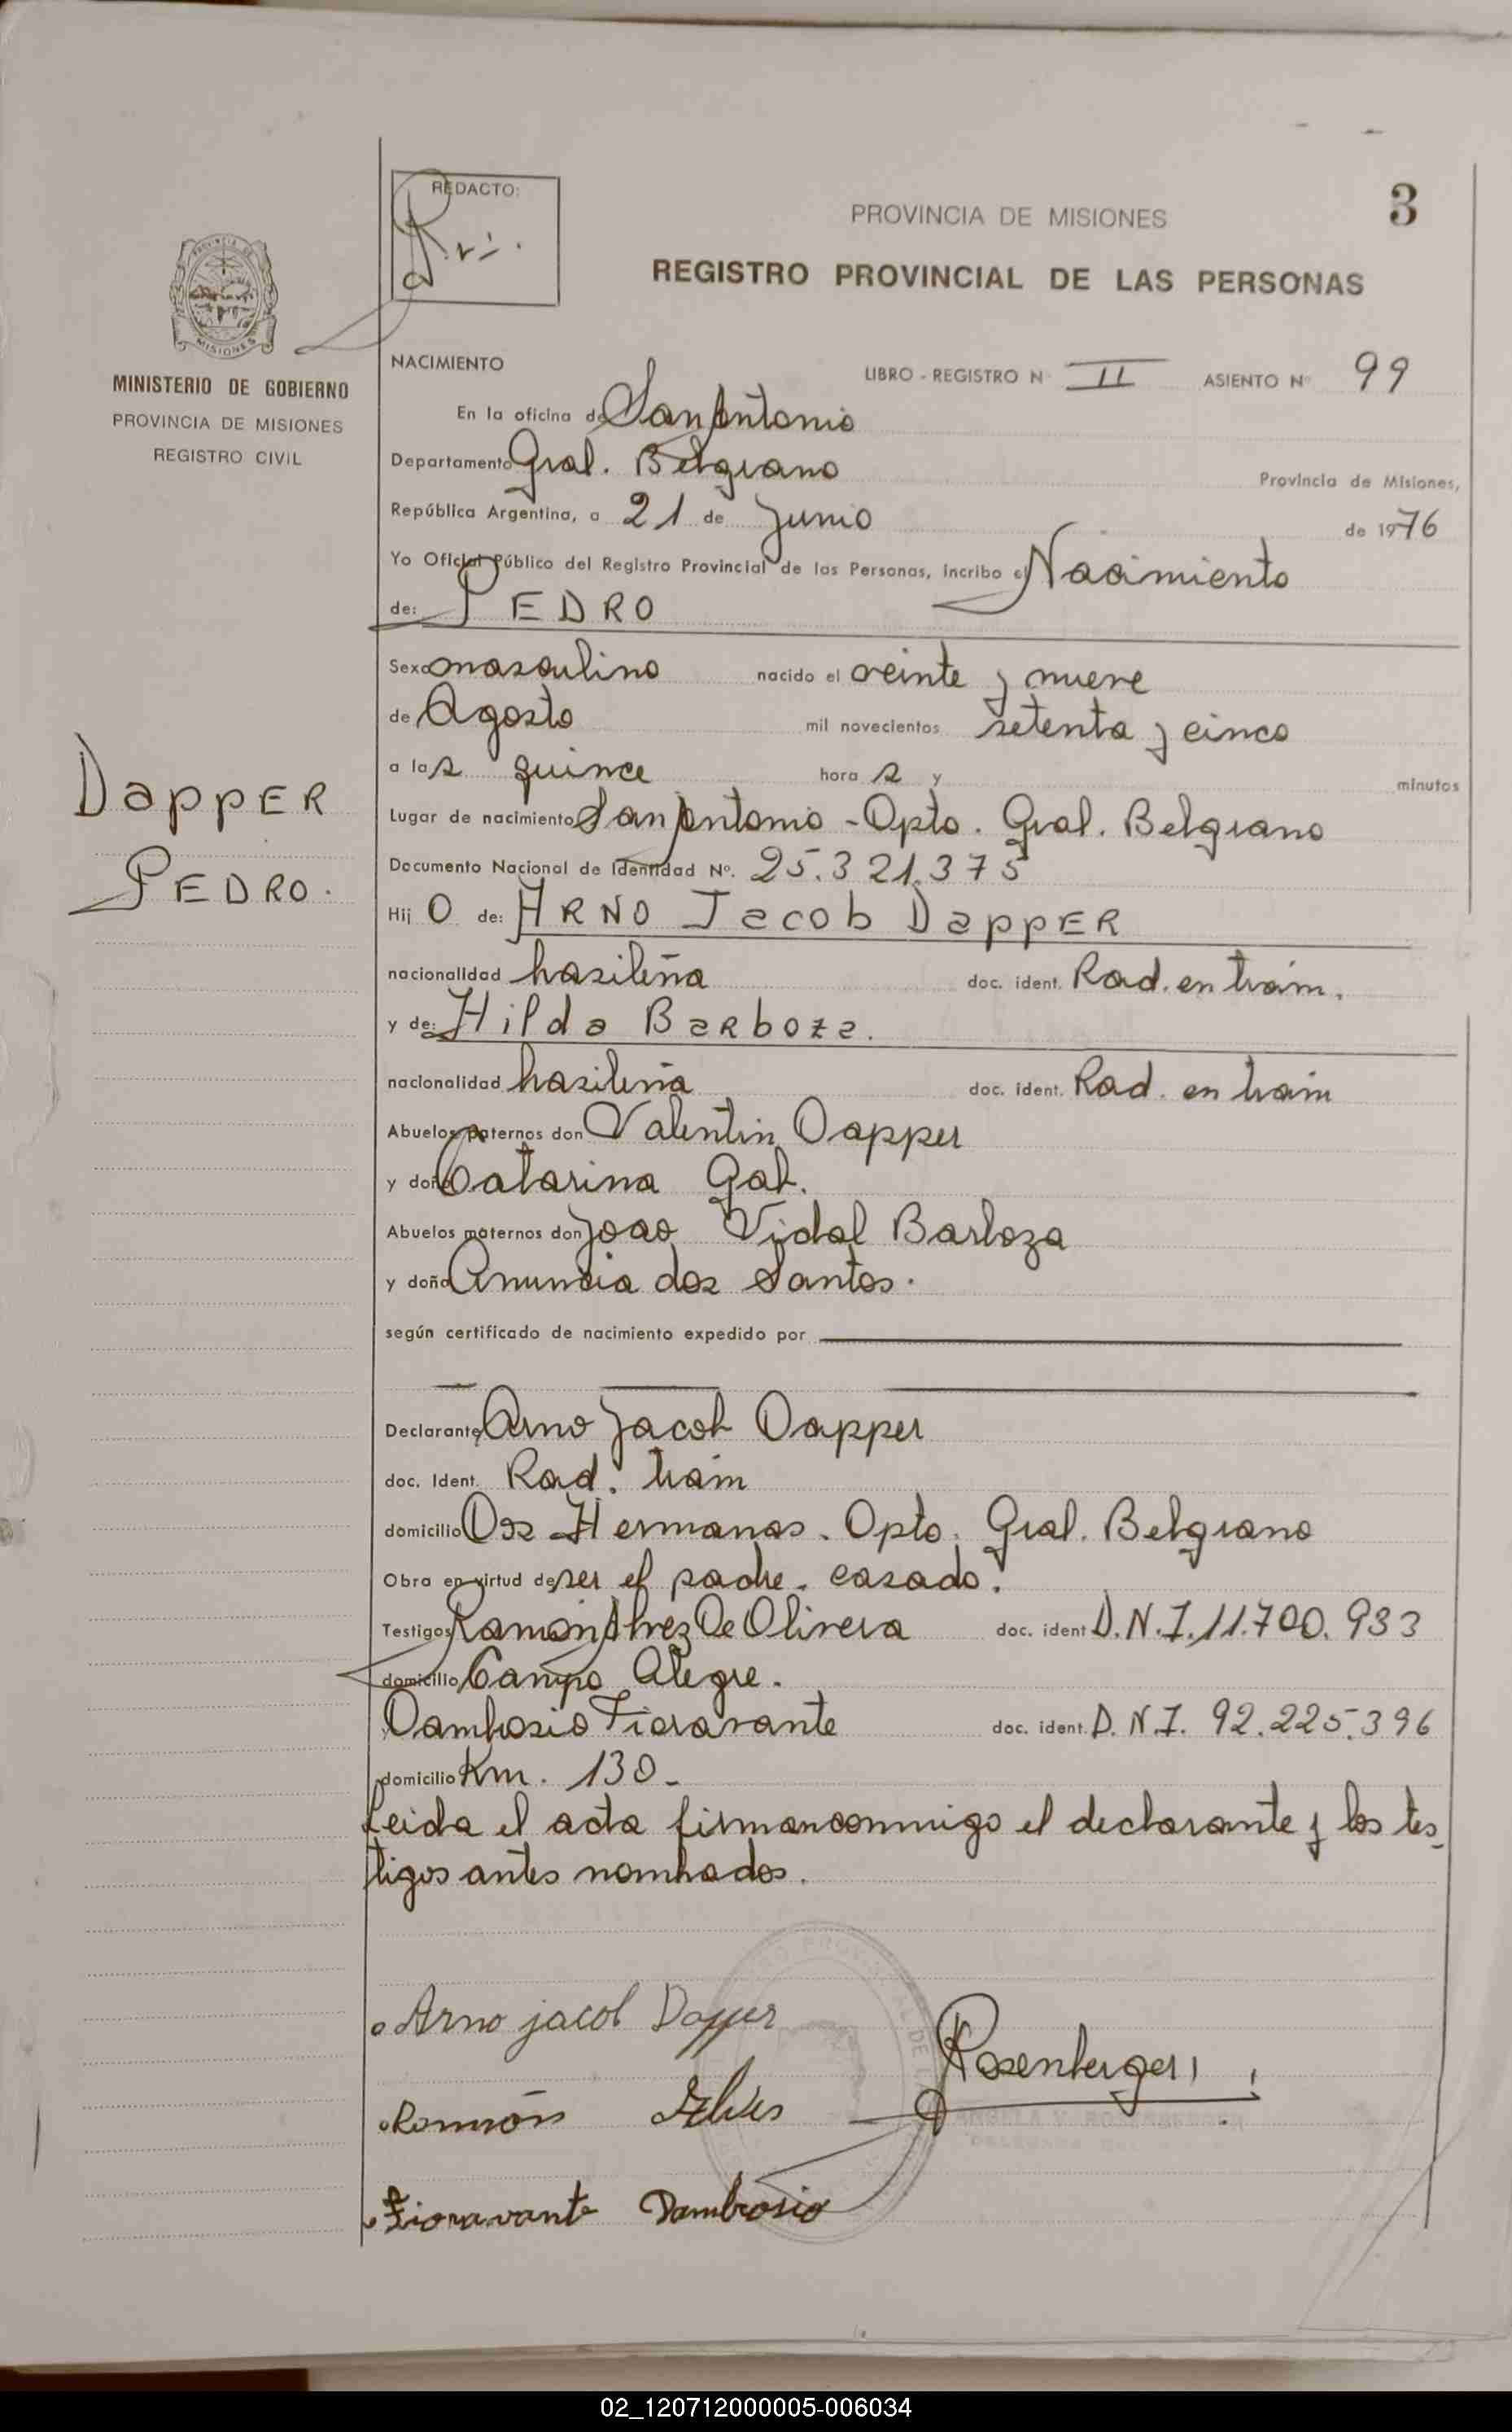 REDACTO:
3
PROVINCIA DE MISIONES
REGISTRO PROVINCIAL DE LAS PERSONAS
MISIONES
MINISTERIO DE GOBIERNO
PROVINCIA DE MISIONES
REGISTRO CIVIL
NACIMIENTO LIBRO - REGISTRO N° II ASIENTO N° 99
En la oficina de San Antonio
Departamento Gral. Belgrano Provincia de Misiones,
República Argentina, a 21 de Junio de 1976
Yo Oficial Público del Registro Provincial de las Personas, incribo el Nacimiento
de: PEDRO
Sexo masculino nacido el veinte y nueve
de Agosto mil novecientos setenta y cinco
a las quince horas y minutos
Dapper
Pedro.
Lugar de nacimiento San Antonio - Dpto. Gral. Belgrano
Documento Nacional de Identidad Nº. 25.321.375
Hijo de: ARNO Jacob Dapper
nacionalidad brasileña doc. ident. Rad. en trám.
y de: Hilda Barboza.
nacionalidad brasileña doc. ident. Rad. en trám
Abuelos paternos don Valentin Dapper
y doña Catarina Gab.
Abuelos maternos don Joao Vidal Barboza
y doña Anuncia dos Santos.
según certificado de nacimiento expedido por
Declarante Arno Jacob Dapper
doc. Ident. Rad. trám
domicilio Dos Hermanas. Dpto. Gral. Belgrano
Obra en virtud de ser el padre. casado.
Testigos Ramón Alvez De Olivera doc. ident D.N.I. 11.700.933
domicilio Campo Alegre.
Dambrosio Fioravante doc. ident. D.N.I. 92.225.396
domicilio Km. 130.
Leida el acta firman conmigo el declarante y los tes
tigos antes nombrados.
Arno jacob Dapper
Rosenberger
Ramón Alves
Fioravante Dambrosio
02_120712000005-006034